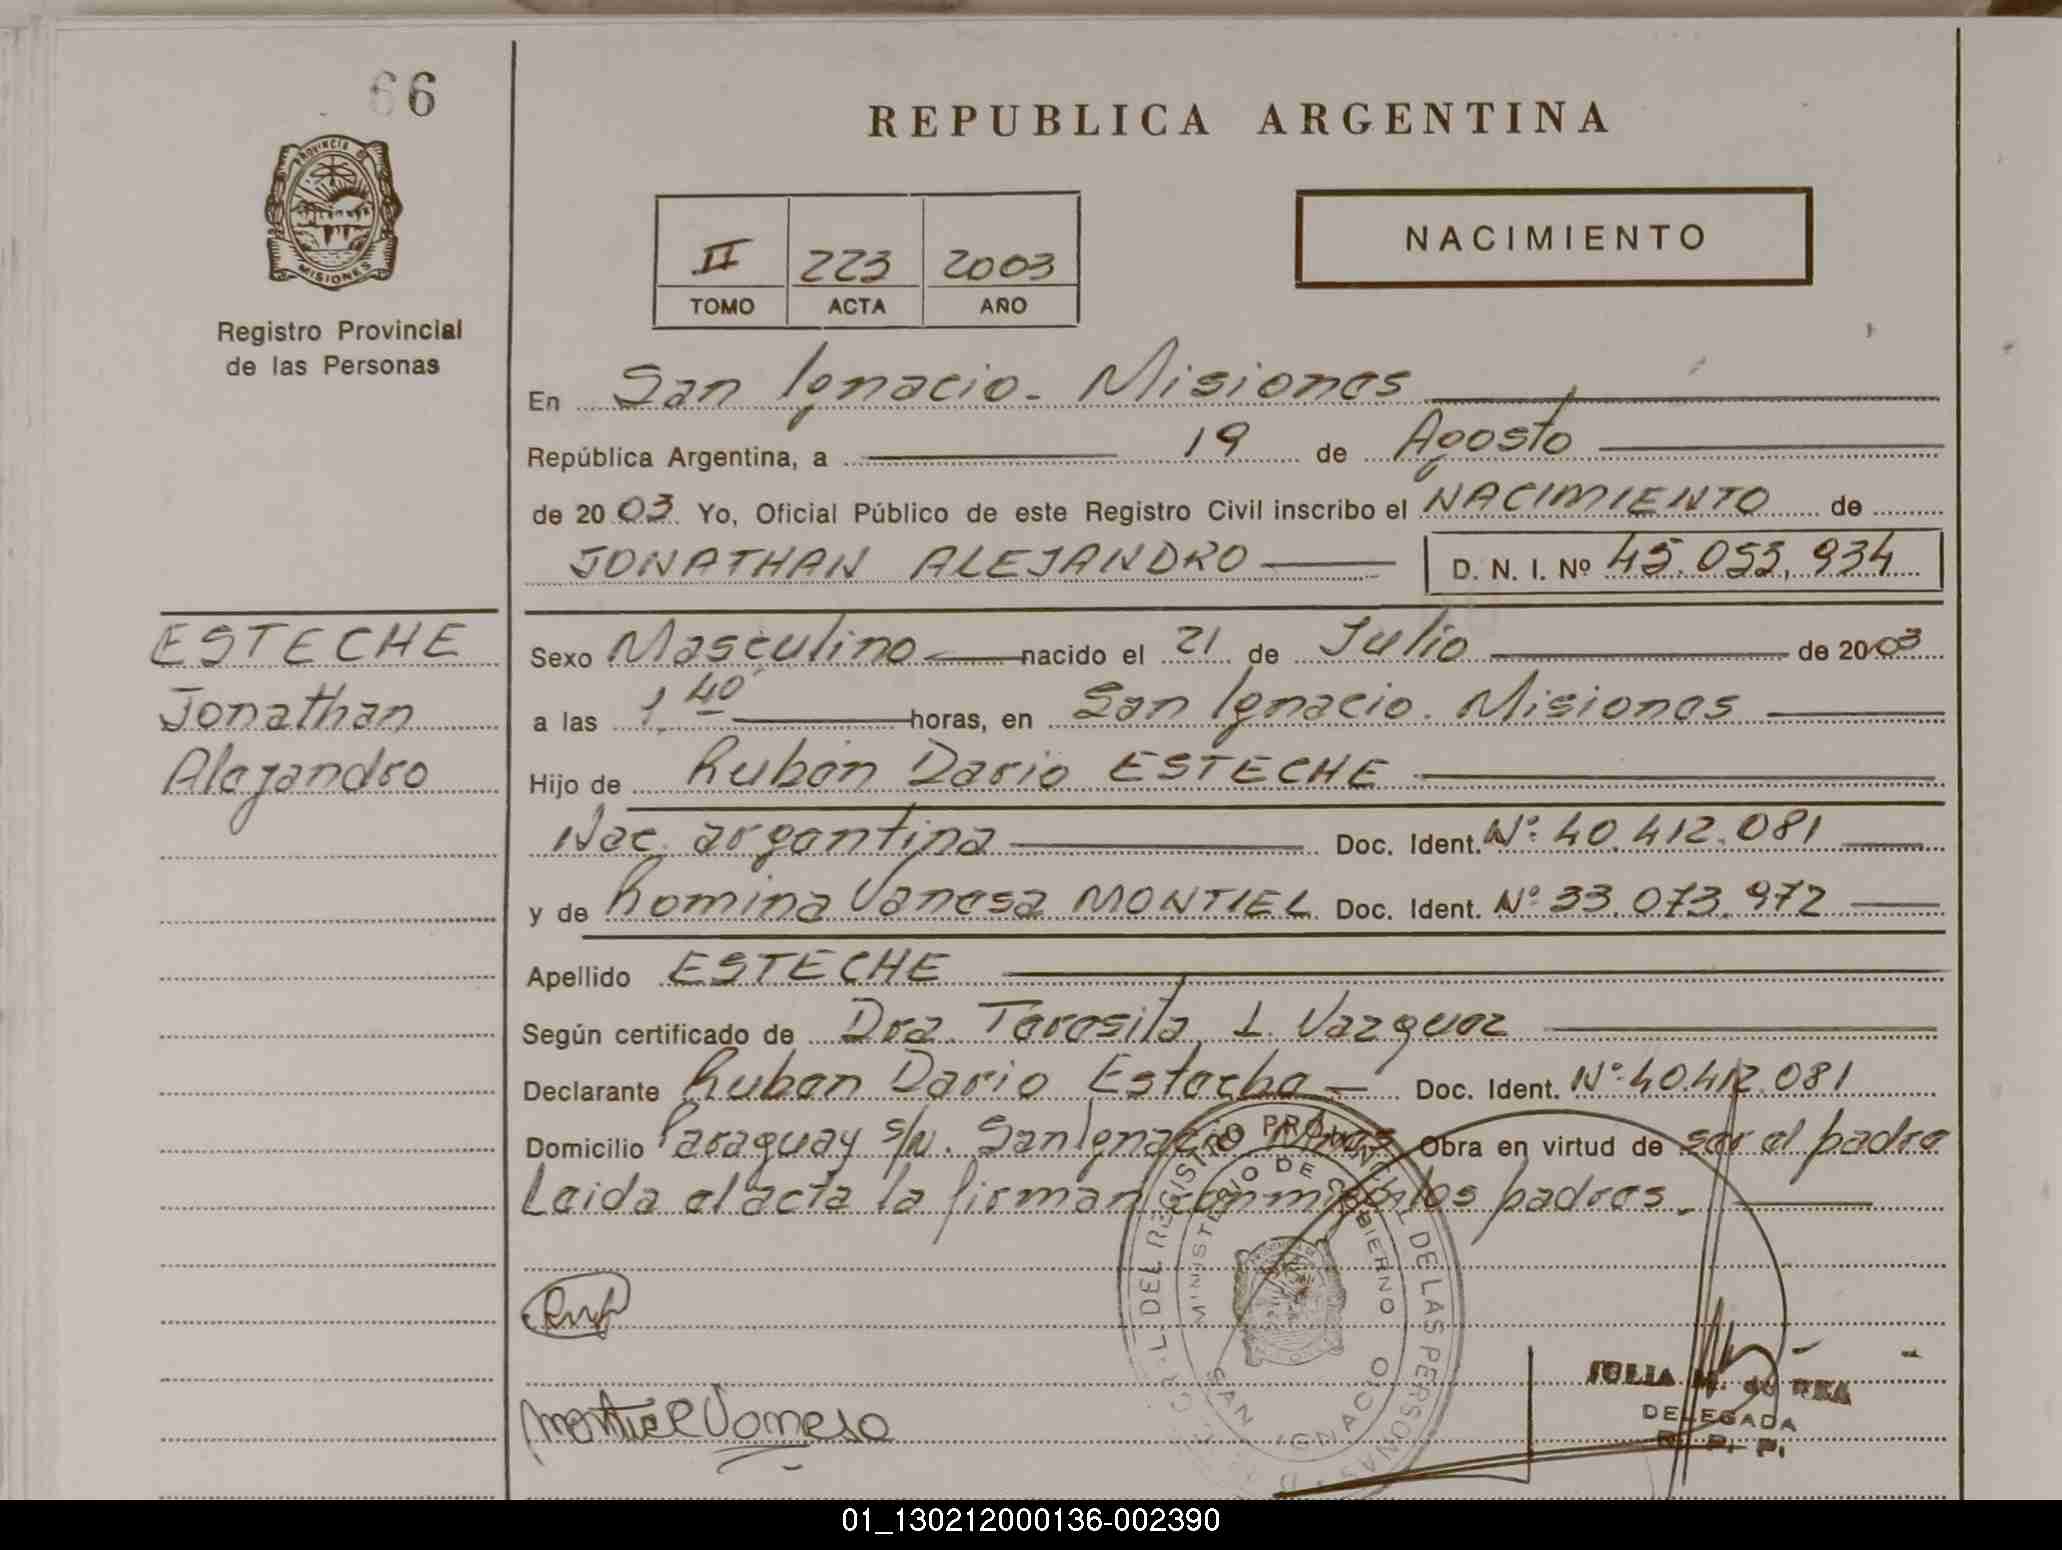 66
REPUBLICA ARGENTINA
PROVINCIA DE
MISIONES
Registro Provincial
de las Personas
II 223 2003
TOMO ACTA AÑO
NACIMIENTO
En San Ignacio - Misiones
República Argentina, a 19 de Agosto
de 2003 Yo, Oficial Público de este Registro Civil inscribo el NACIMIENTO de
JONATHAN ALEJANDRO D. N. I. Nº 45.053.934
ESTECHE
Jonathan
Alejandro
Sexo Masculino nacido el 21 de Julio de 2003
a las 1,40 horas, en San Ignacio. Misiones
Hijo de Rubén Dario ESTECHE
Nac. argentina Doc. Ident. Nº: 40.412.081
y de Romina Vanesa MONTIEL Doc. Ident. Nº 33.073.972
Apellido ESTECHE
Según certificado de Dra. Teresita L. Vazquez
Declarante Ruben Dario Esteche Doc. Ident. Nº: 40.412.081
Domicilio Paraguay s/n. San Ignacio Mnes Obra en virtud de ser el padre
Leida el acta la firman conmigo los padres.
DEL REGISTRO PROVINCIAL DE LAS PERSONAS
MINISTERIO DE GOBIERNO
SAN IGNACIO
Montiel Vanesa
JULIA M. de REA
DELEGADA
R. P. P.
01_130212000136-002390